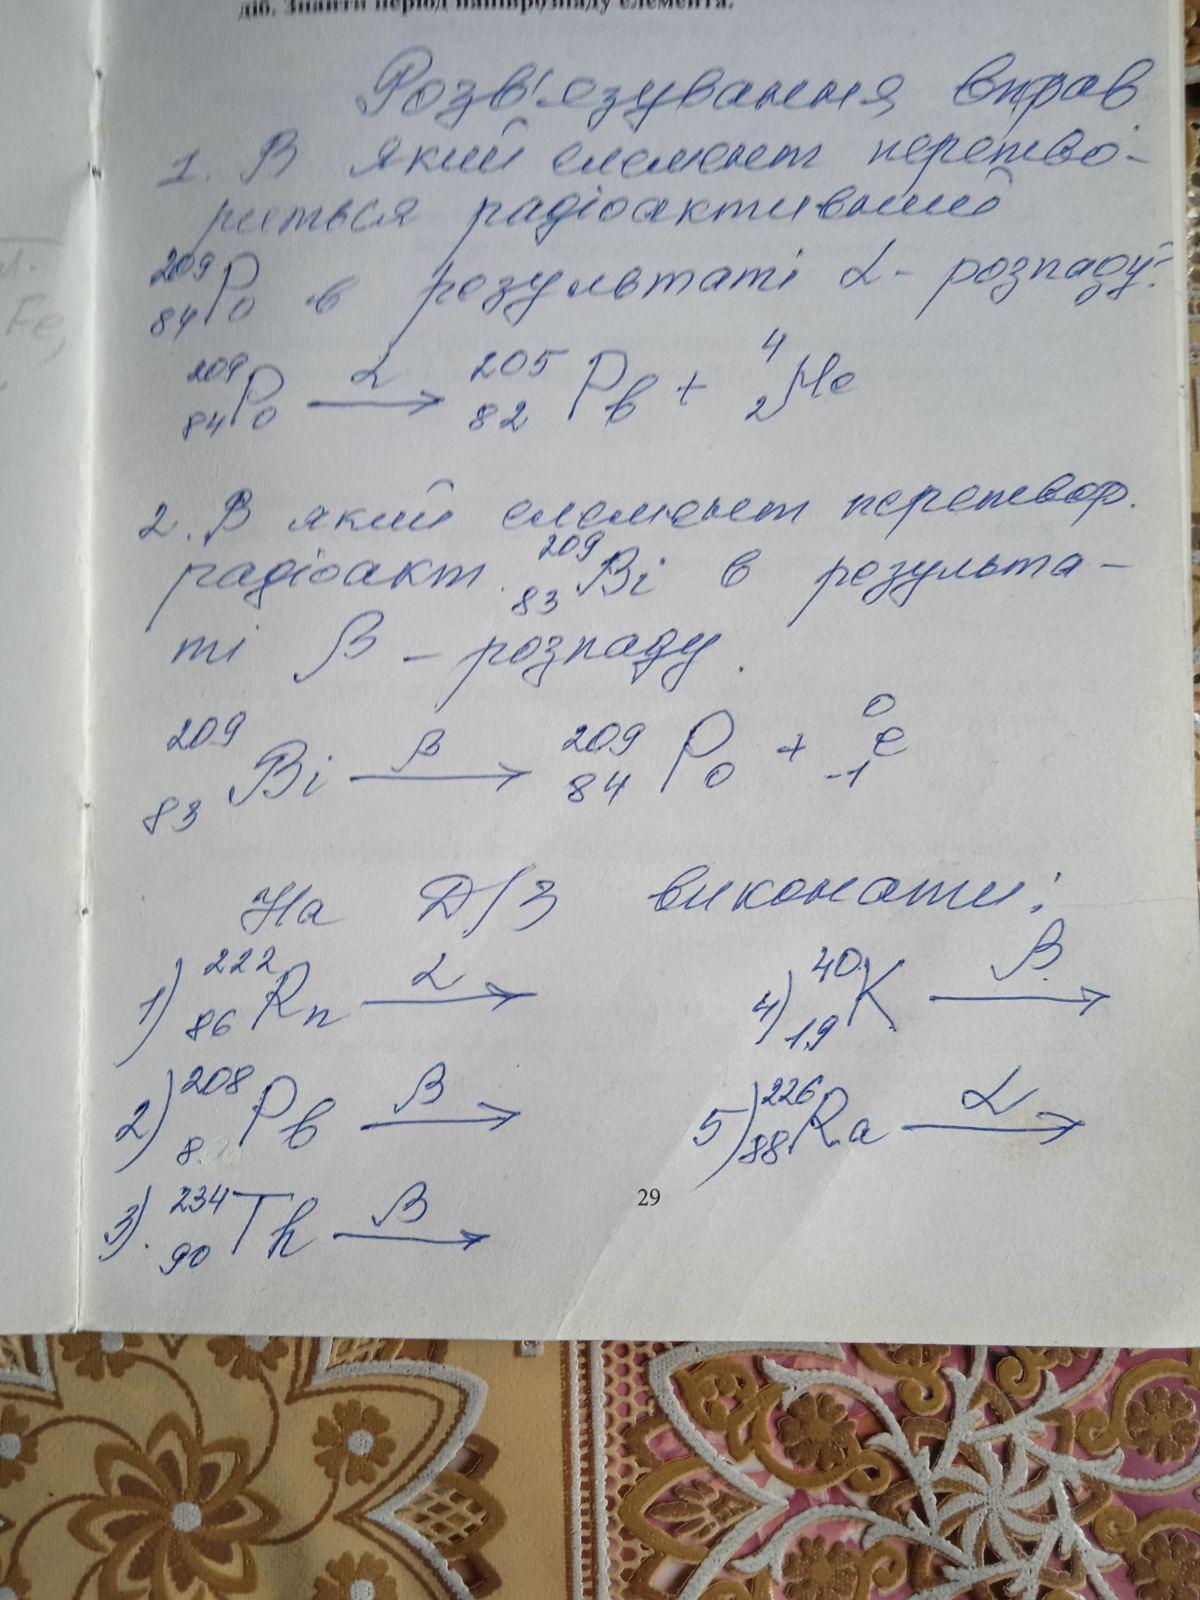 діб. Знайти період напіврозпаду елемента.
Розв'язування вправ
1. В який елемент перетво-
риться радіоактивний
²⁰⁹₈₄Po в результаті α - розпаду?
²⁰⁹₈₄Po —α→ ²⁰⁵₈₂Pb + ⁴₂He
2. В який елемент перетвор.
радіоакт. ²⁰⁹₈₃Bi в результа-
ті β - розпаду.
²⁰⁹₈₃Bi —β→ ²⁰⁹₈₄Po + ⁰₋₁e
На Д/З виконати:
1) ²²²₈₆Rn —α→
2) ²⁰⁸₈Pb —β→
3) ²³⁴₉₀Th —β→
4) ⁴⁰₁₉K —β→
5) ²²⁶₈₈Ra —α→
29
Fe,